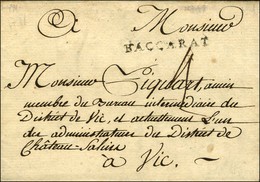 A Monsieur
BACCARAT
Monsieur Tiquart, ancien
membre du Bureau intermédiaire du
District de Vic, et actuellement L'un
des administrateurs du District de
Château-Salins
a Vic.